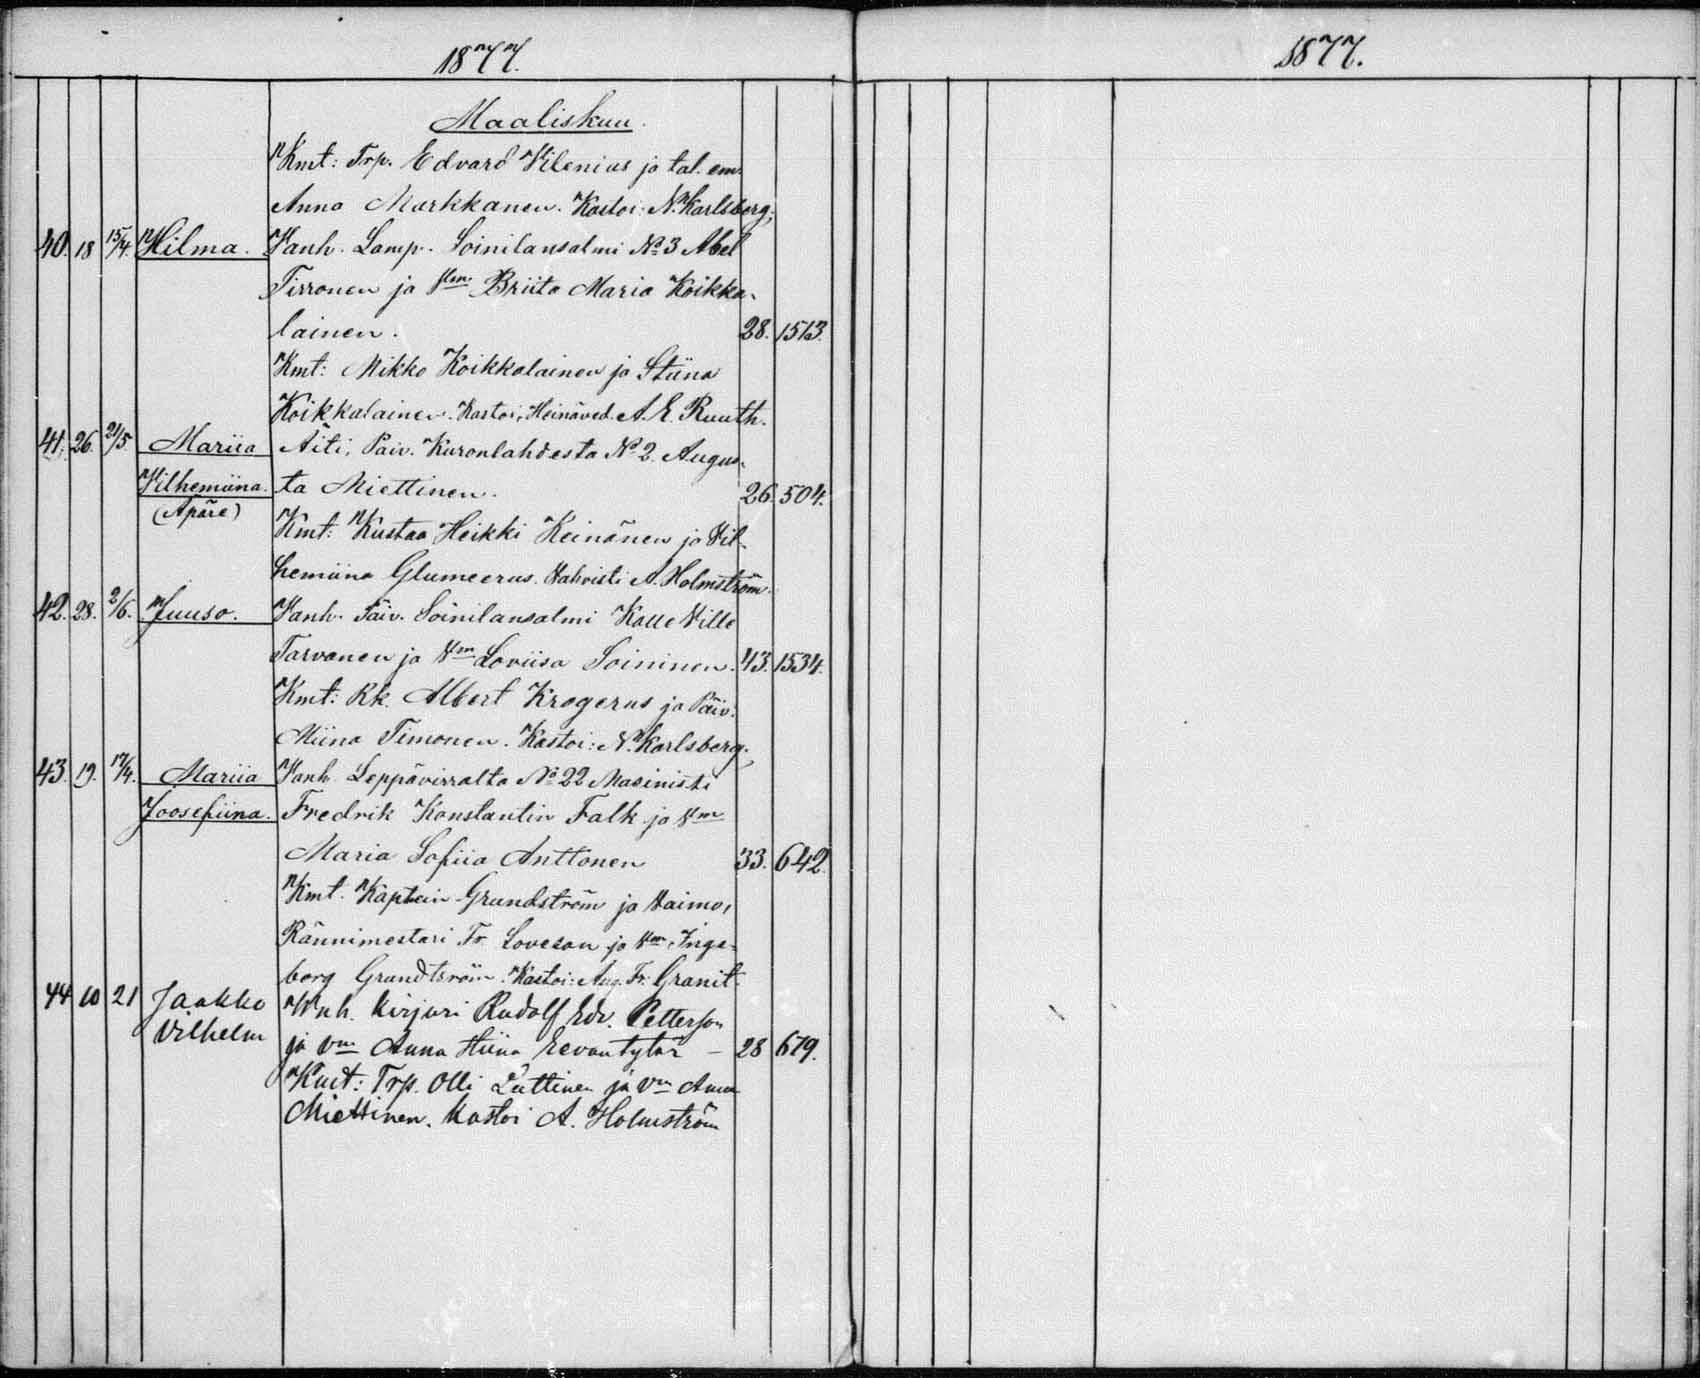 1877.
1877.
Maaliskuu.
Kmt: Trp. Edvard Vilenius ja tal. em.
Anna Markkanen. Kastoi: N. Karlsberg;
40. 18 15/4. Hilma. Vanh. Lamp. Soinilansalmi No 3 Abel
Tirronen ja Vm Briita Maria Koikka-
lainen. 28. 1513.
Kmt: Mikko Koikkalainen ja Stiina
Koikkalainen. Kastoi, Heinäved. A. E. Ruuth.
41. 26. 21/5. Mariia Äiti, Paiv. Kuronlahdesta No 2. Augus-
Vilhemiina. ta Miettinen. 26. 504.
(Äpäre)
Kmt: Kustaa Heikki Keinänen ja Vil-
hemiina Glumeerus. Vahvisti A. Holmström.
42. 28. 2/6. Juuso. Vanh. Päiv. Soinilansalmi Kalle Ville
Tarvanen ja Vm Loviisa Soininen. 43. 1534.
Kmt: Rk. Albert Krogerus ja Päiv.
Miina Timonen. Kastoi: N. Karlsberg.
43. 19. 17/4. Mariia Vanh. Leppävirralta No 22 Masinisti
Joosefiina. Fredrik Konstantin Falk ja Vm
Maria Sofiia Anttonen 33. 642.
Kmt. Kaptein Grundström ja Vaimo,
Rännimestari Fr. Loveson ja Vm Inge-
borg Grundtsröm. Kastoi: Aug. Fr. Granit.
44 10 21 Jaakko Wnh. Kirjuri Rudolf Edv. Petterson
Vilhelm ja vm Anna Hiina Eevantytär – 28 679.
Kmt: Trp. Olli Luttinen ja vm Anna
Miettinen. Kastoi A. Holmström